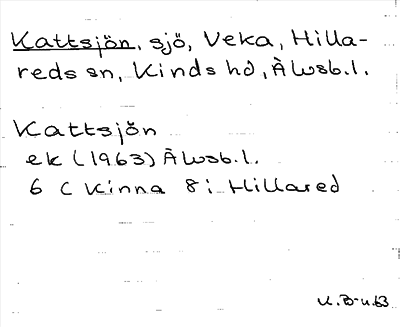 Kattsjön, sjö, Veka, Hilla-
reds sn, Kinds hd, Älvsb.l.
Kattsjön
ek (1963) Älvsb.l.
6 C Kinna 8 i Hillared